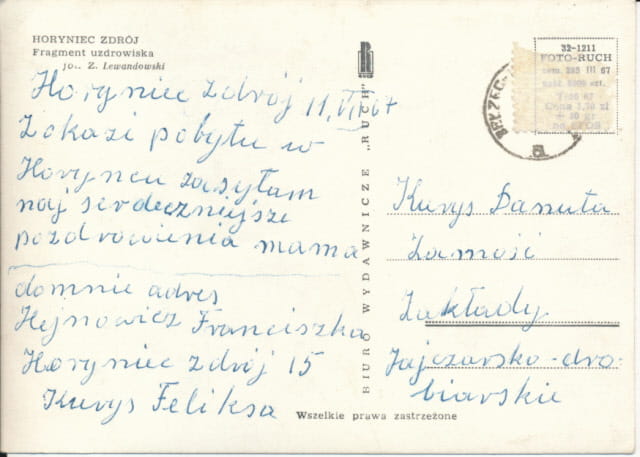 HORYNIEC ZDRÓJ
Fragment uzdrowiska
fot. Z. Lewandowski
Horyniec Zdrój 11,VI,67
Z okazi pobytu w
Horyncu zasyłam
naj serdeczniejsze
pozdrowienia mama
domnie adres
Hejnowicz Franciszka
Horyniec zdrój 15
Kurys Feliksa
BIURO WYDAWNICZE „RUCH"
32-1211
FOTO-RUCH
III 67
Cena
zł
+
gr
a
Kurys Danuta
Zamość
Zakłady
Jajczarsko-dro-
biarskie
Wszelkie prawa zastrzeżone